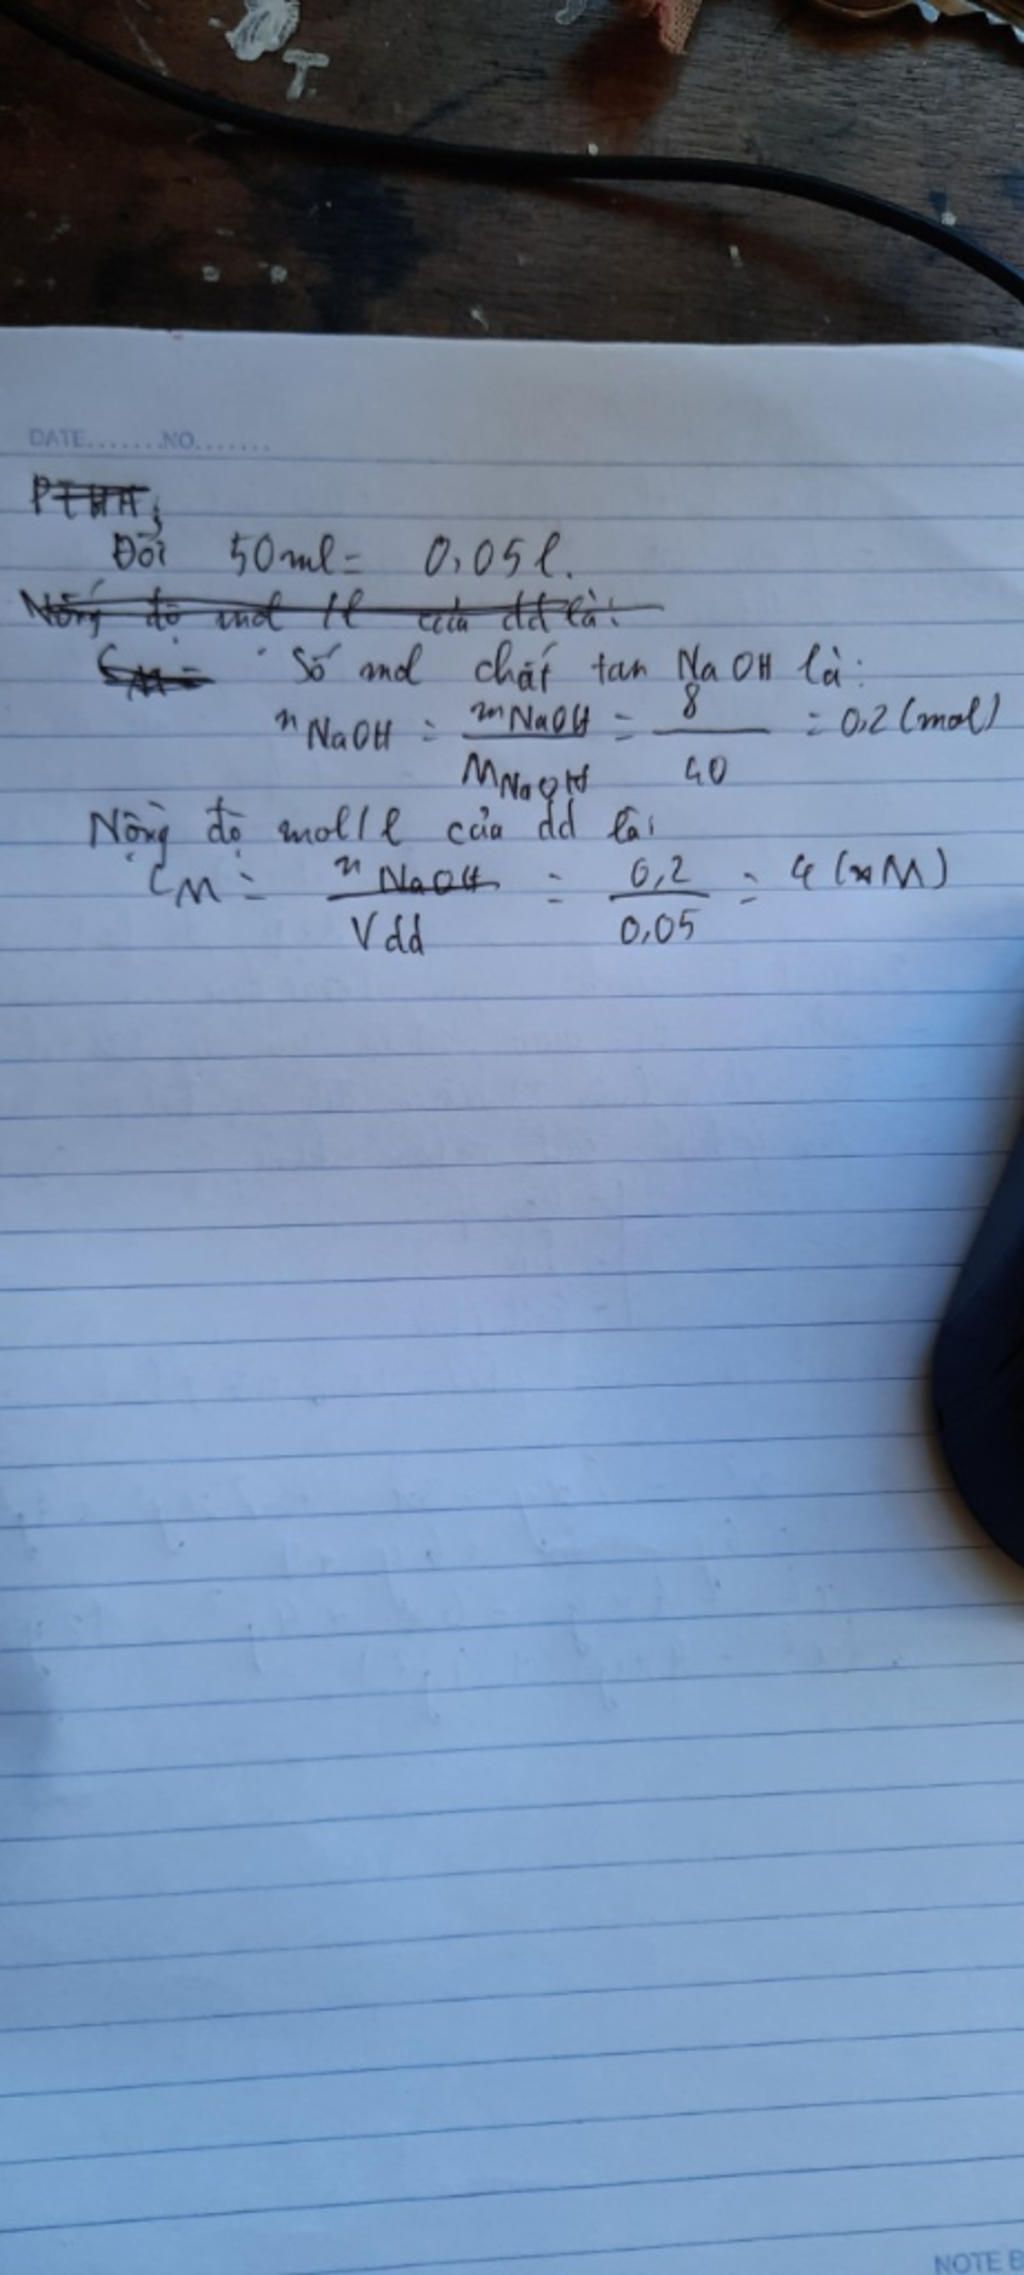 DATE.......NO.......
PTHH:
Đổi 50ml = 0,05l.
Nồng độ mol/l của dd là:
CM = Số mol chất tan NaOH là:
nNaOH = mNaOH / MNaOH = 8 / 40 = 0,2 (mol)
Nồng độ mol/l của dd là:
CM = nNaOH / Vdd = 0,2 / 0,05 = 4 (M)
NOTE B